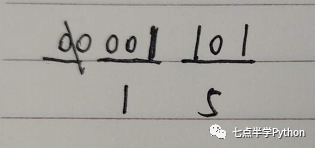 00 001 101
1 5
七点半学Python